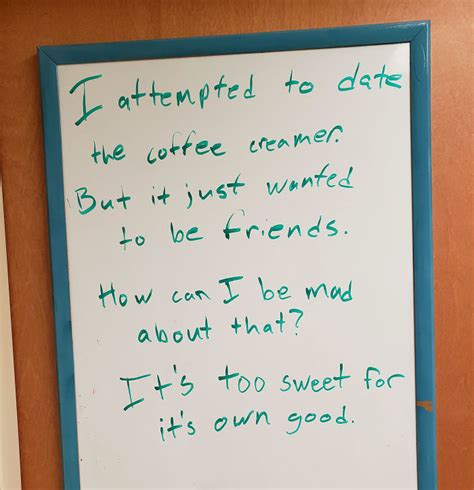 I attempted to date
the coffee creamer.
But it just wanted
to be friends.
How can I be mad
about that?
It's too sweet for
it's own good.